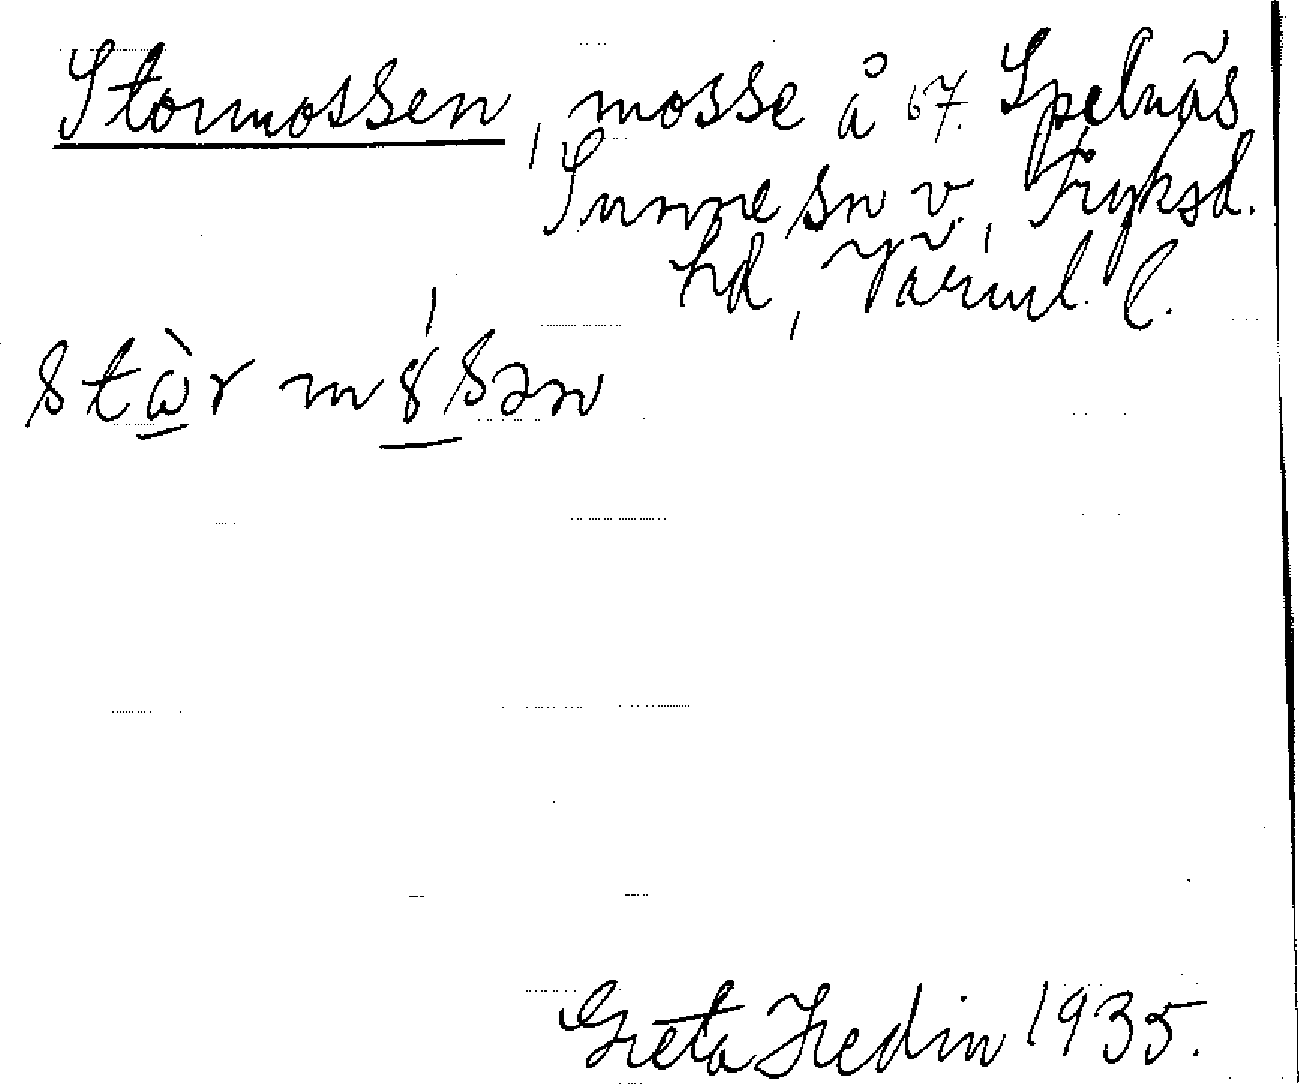 Stormossen, mosse å 67. Spelnäs,
Sunne sn v., Fryksd.
hd, Värml. l.
Greta Hedin 1935.